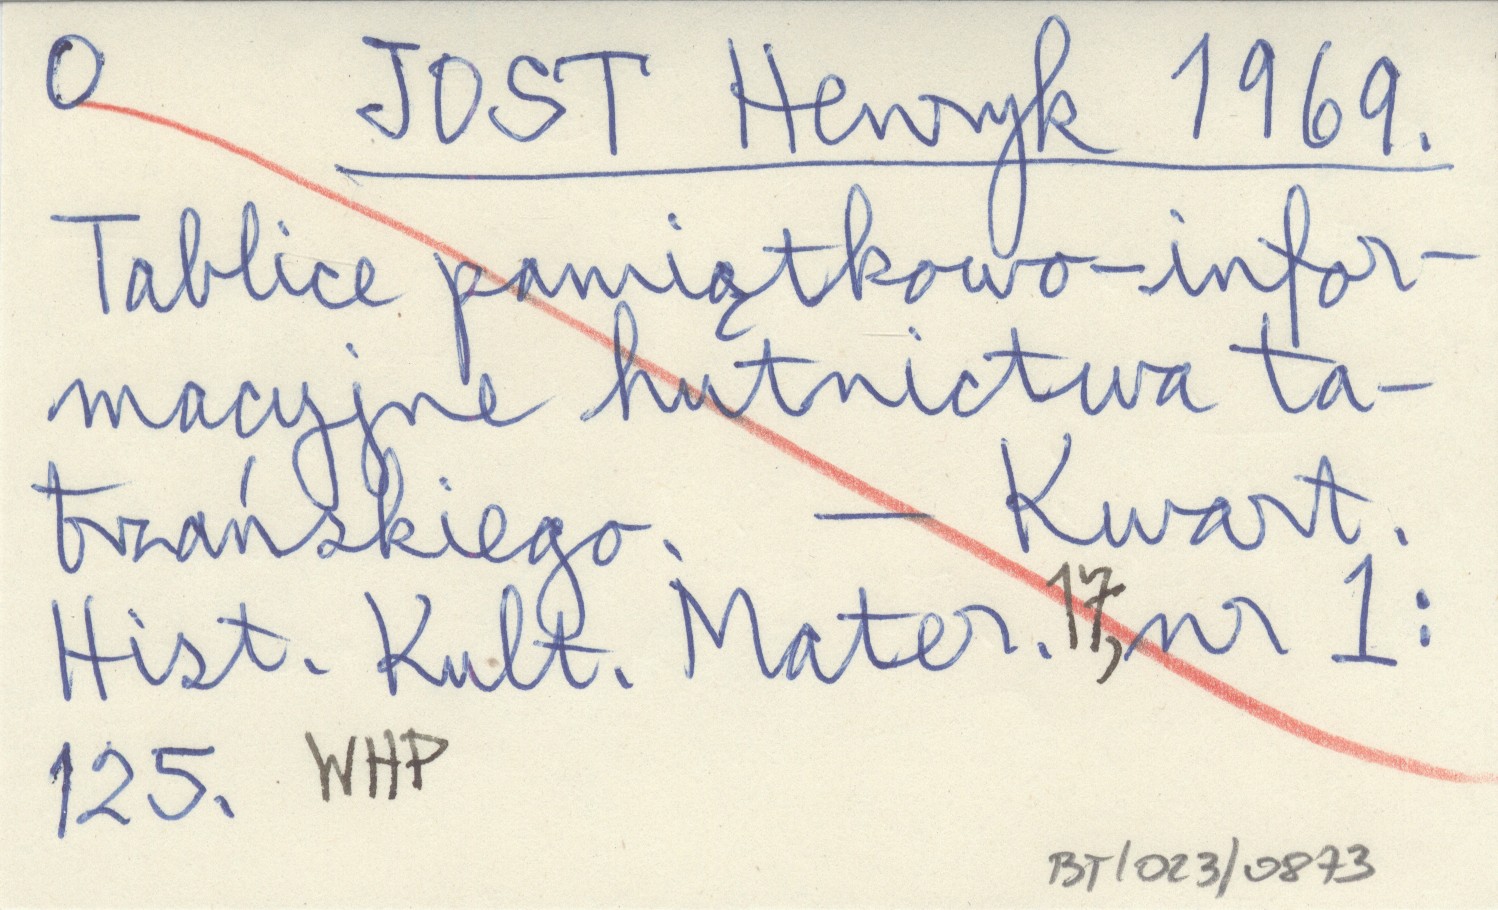 O JOST Henryk 1969.
Tablice pamiątkowo-infor-
macyjne hutnictwa ta-
trzańskiego. — Kwart.
Hist. Kult. Mater. 17, nr 1:
125. WHP
BT/023/0873